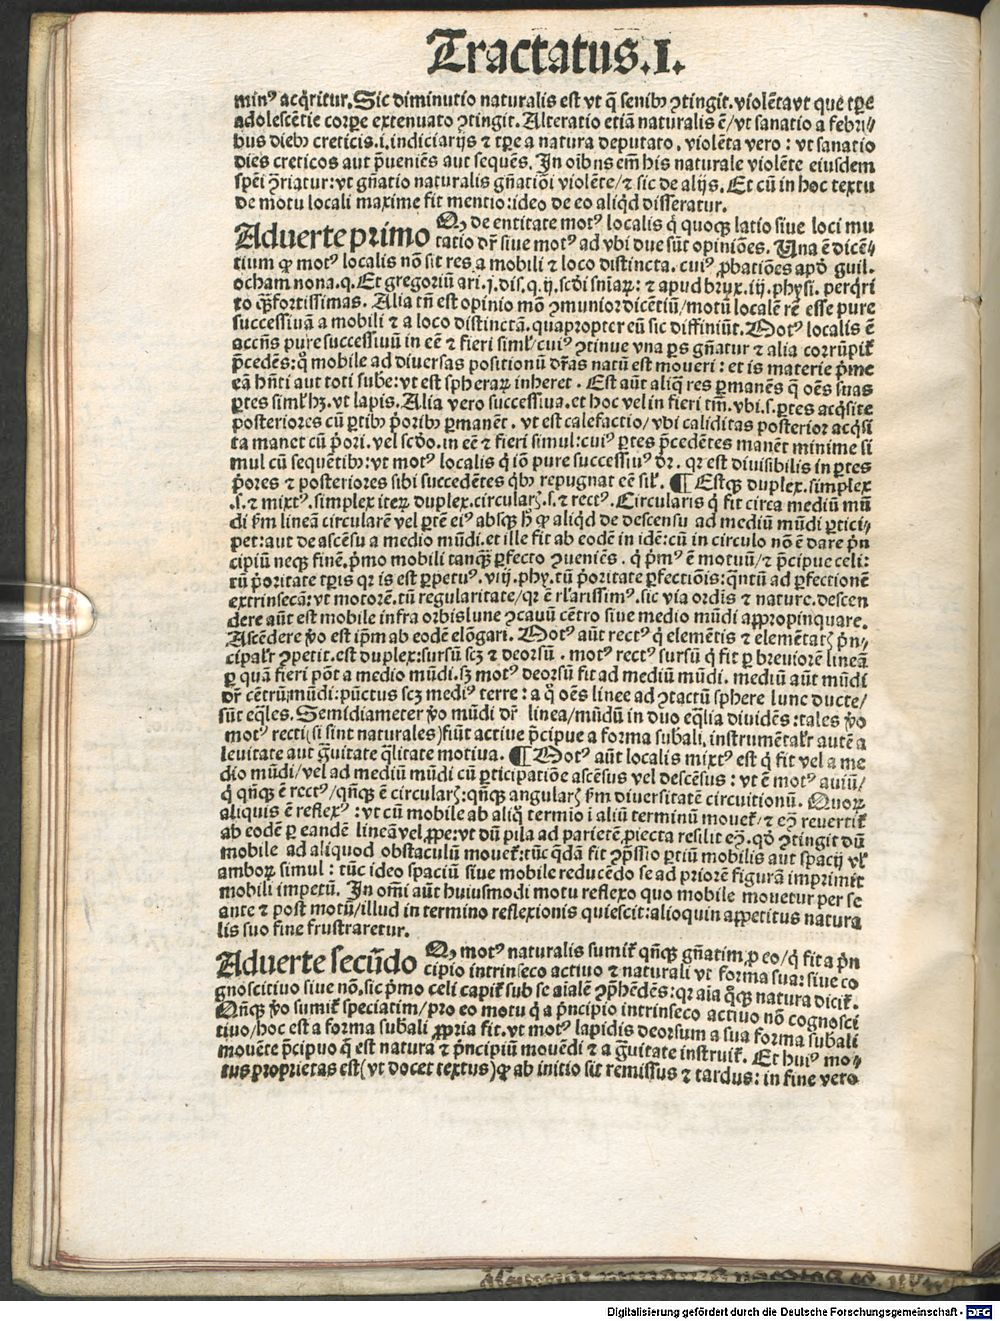 Tractatus.I.
minꝰ acq̇ritur. Sic diminutio naturalis est vt q̄ senibꝫ ꝯtingit. violēta vt que tꝑe
adolescētie corꝑe extenuato ꝯtingit. Alteratio etiā naturalis ē/vt sanatio a febri//
bus diebꝫ creticis.i.indiciarijs ⁊ tꝑe a natura deputato. violēta vero: vt sanatio
dies creticos aut p̄ueniēs aut sequēs. In oībus em̄ his naturale violēte eiusdem
spēi ꝯriatur: vt gn̄atio naturalis gn̄atiōi violēte/⁊ sic de alijs. Et cū in hoc textu
de motu locali maxime fit mentio: ideo de eo aliqd̄ disseratur.
Aduerte primo Qꝫ de entitate motꝰ localis q̇ quoqꝫ latio siue loci mu
tatio dr̄ siue motꝰ ad vbi due sūt opiniōes. Una ē dicē//
tium ꝙ motꝰ localis nō sit res a mobili ⁊ loco distincta. cuiꝰ ꝓbatiōes apd̄ guil.
ocham nona.q. Et gregoriū ari.j.dis.q.ij.scd̄i sn̄iaꝝ: ⁊ apud brux.iij.physi. perq̇ri
to qꝫ̄fortissimas. Alia tn̄ est opinio mō ꝯmunior dicētiū/motū localē rē esse pure
successiuā a mobili ⁊ a loco distinctā. quapropter eū sic diffiniūt. Motꝰ localis ē
accn̄s pure successiuū in eē ⁊ fieri siml̄/cuiꝰ ꝯtinue vna ꝑs gn̄atur ⁊ alia corrūpit̄
p̄cedēs: q̊ mobile ad diuersas positionū dr̄as natū est moueri: et is materie p̄me
eā hn̄ti aut toti sube: vt est spheraꝝ inheret. Est aūt aliq̄ res ꝑmanēs q̄ oēs suas
ꝑtes siml̄ hꝫ. vt lapis. Alia vero successiua. et hoc vel in fieri tm̄. vbi.s.ꝑtes acq̇site
posteriores cū ꝑtibꝫ p̄oribꝫ ꝑmanēt. vt est calefactio/ vbi caliditas posterior acq̇si
ta manet cū p̄ori. vel scd̄o. in eē ⁊ fieri simul: cuiꝰ ꝑtes p̄cedētes manēt minime si
mul cū sequētibꝫ: vt motꝰ localis q̇ iō pure successiuꝰ dr̄. qr est diuisibilis in ꝑtes
p̄ores ⁊ posteriores sibi succedētes q̇bꝫ repugnat eē sil̄. ¶ Estqꝫ duplex. simplex
.s. ⁊ mixtꝰ. simplex iteꝝ duplex. circularꝭ.s. ⁊ rectꝰ. Circularis q̇ fit circa mediū mū
di s̄m lineā circularē vel ꝑtē eiꝰ absqꝫ h̊ ꝙ aliqd̄ de descensu ad mediū mūdi ꝑtici//
pet: aut de ascēsu a medio mūdi. et ille fit ab eodē in idē: cū in circulo nō ē dare p̄n
cipiū neqꝫ finē. p̄mo mobili tanqꝫ̄ ꝑfecto ꝯueniēs. q̇ p̄mꝰ ē motuū/⁊ p̄cipue celi:
tū p̄oritate tꝑis qr is est ꝑpetuꝰ. viij.phy. tū p̄oritate ꝑfectiōis: q̄ntū ad ꝑfectionē
extrinsecā: vt motorē. tū regularitate/qr ē rl̄arissimꝰ. sic via ordīs ⁊ nature. descen
dere aūt est mobile infra orbis lune ꝯcauū cētro siue medio mūdi appropinquare.
Ascēdere v̊o est ip̄m ab eodē elōgari. Motꝰ aūt rectꝰ q̇ elemētis ⁊ elemētatꝭ p̄n//
cipal̄r ꝯpetit. est duplex: sursū scꝫ ⁊ deorsū. motꝰ rectꝰ sursū q̇ fit ꝑ breuiorē lineā
ꝑ quā fieri pōt a medio mūdi. sꝫ motꝰ deorsū fit ad mediū mūdi. mediū aūt mūdi
dr̄ cētrū mūdi: pūctus scꝫ mediꝰ terre: a q̊ oēs linee ad ꝯtactū sphere lune ducte/
sūt eq̄les. Semidiameter v̊o mūdi dr̄ linea/mūdū in duo eq̄lia diuidēs: tales v̊o
motꝰ recti(si sint naturales)fiūt actiue p̄cipue a forma subali, instrumētal̄r autē a
leuitate aut ḡuitate q̄litate motiua. ¶ Motꝰ aūt localis mixtꝰ est q̇ fit vel a me
dio mūdi/vel ad mediū mūdi cū ꝑticipatiōe ascēsus vel descēsus: vt ē motꝰ auiū/
q̇ qn̄qꝫ ē rectꝰ/qn̄qꝫ ē circularꝭ: qn̄qꝫ angularꝭ s̄m diuersitatē circuitionū. Quoꝝ
aliquis ē reflexꝰ: vt cū mobile ab aliq̊ termio i aliū terminū mouet̄/⁊ eꝫ reuertit̄
ab eodē ꝑ eandē lineā vel ꝓpe: vt dū pila ad parietē ꝓiecta resilit eꝫ. qd̄ ꝯtingit dū
mobile ad aliquod obstaculū mouet̄: tūc q̄dā fit ꝯp̄ssio ꝑtiū mobilis aut spacij vl̄
amboꝝ simul: tūc ideo spaciū siue mobile reducēdo se ad priorē figurā imprimit
mobili impetū. In om̄i aūt huiusmodi motu reflexo quo mobile mouetur per se
ante ⁊ post motū/illud in termino reflexionis quiescit: alioquin appetitus natura
lis suo fine frustraretur.
Aduerte secūdo Qꝫ motꝰ naturalis sumit̄ qn̄qꝫ gn̄atim. ꝓ eo/q̇ fit a p̄n
cipio intrinseco actiuo ⁊ naturali vt forma sua: siue co
gnoscitiuo siue nō. sic p̄mo celi capit̄ sub se aīalē ꝯp̄hēdēs: qr aīa q̊qꝫ natura dicit̄.
Qn̄qꝫ v̊o sumit̄ speciatim/pro eo motu q̇ a p̄ncipio intrinseco actiuo nō cognosci
tiuo/hoc est a forma subali ꝓpria fit. vt motꝰ lapidis deorsum a sua forma subali
mouēte p̄cipuo q̄ est natura ⁊ p̄ncipiū mouēdi ⁊ a ḡuitate instruit̄. Et huiꝰ mo-
tus proprietas est(vt docet textus)ꝙ ab initio sit remissus ⁊ tardus: in fine vero
Digitalisierung gefördert durch die Deutsche Forschungsgemeinschaft - DFG